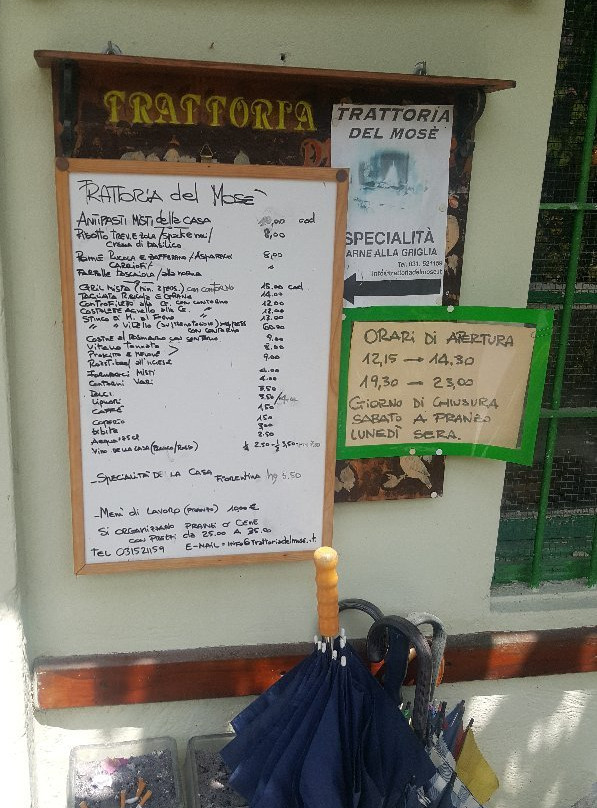 TRATTORIA
TRATTORIA del MOSÈ
ANTIPASTI MISTI della CASA 10,00 cad
RISOTTO TREV. E ZOLA / 8,00
CREMA di basilico
RUCOLA E ZAFFERANO / ASPARAGI 8,00
CARCIOFI /
FARFALLE BOSCAIOLA / alla NORMA "
GRIL MISTA (MIN. 2 PERS.) CON CONTORNO 15.00 cad
TAGLIATA RUCOLA E GRANA 14.00
CONTROFILETTO alla G. CON CONTORNO 12.00
COSTOLETTE AGNELLO alla G. " 12.00
STINCO DI M. al FORNO " 12.00
" VITELLO (SU PRENOTAZIONE) 60.00
CON CONTORNO
COSTINE al ROSMARINO CON CONTORNO 9.00
VITELLO TONNATO 8.00
PROSCIUTTO E MELONE 9.00
ROASTBEEF all'INGLESE
FORMAGGI MISTI 4.00
CONTORNI VARI 4.00
DOLCI 3.50
LIQUORI 3.50/4.00
CAFFÈ 1,50
COPERTO 1,50
bibite 3.00
ACQUA 2.50
VINO DELLA CASA (BIANCO/ROSSO) ¼ 2.50 - ½ 3,50
- SPECIALITÀ DELLA CASA FIORENTINA hg 3,50
- MENÙ DI LAVORO (PRANZO) 10,00 €
SI ORGANIZZANO PRANZI O CENE
CON PREZZI da 25.00 A 35.00
TEL 031521159 E-MAIL = INFO@Trattoriadelmose.it
TRATTORIA
DEL MOSÈ
SPECIALITÀ
CARNE ALLA GRIGLIA
Tel. 031. 521159
info@trattoriadelmose.it
ORARI DI APERTURA
12,15 → 14,30
19,30 → 23,00
GIORNO DI CHIUSURA
SABATO A PRANZO
LUNEDÌ SERA.